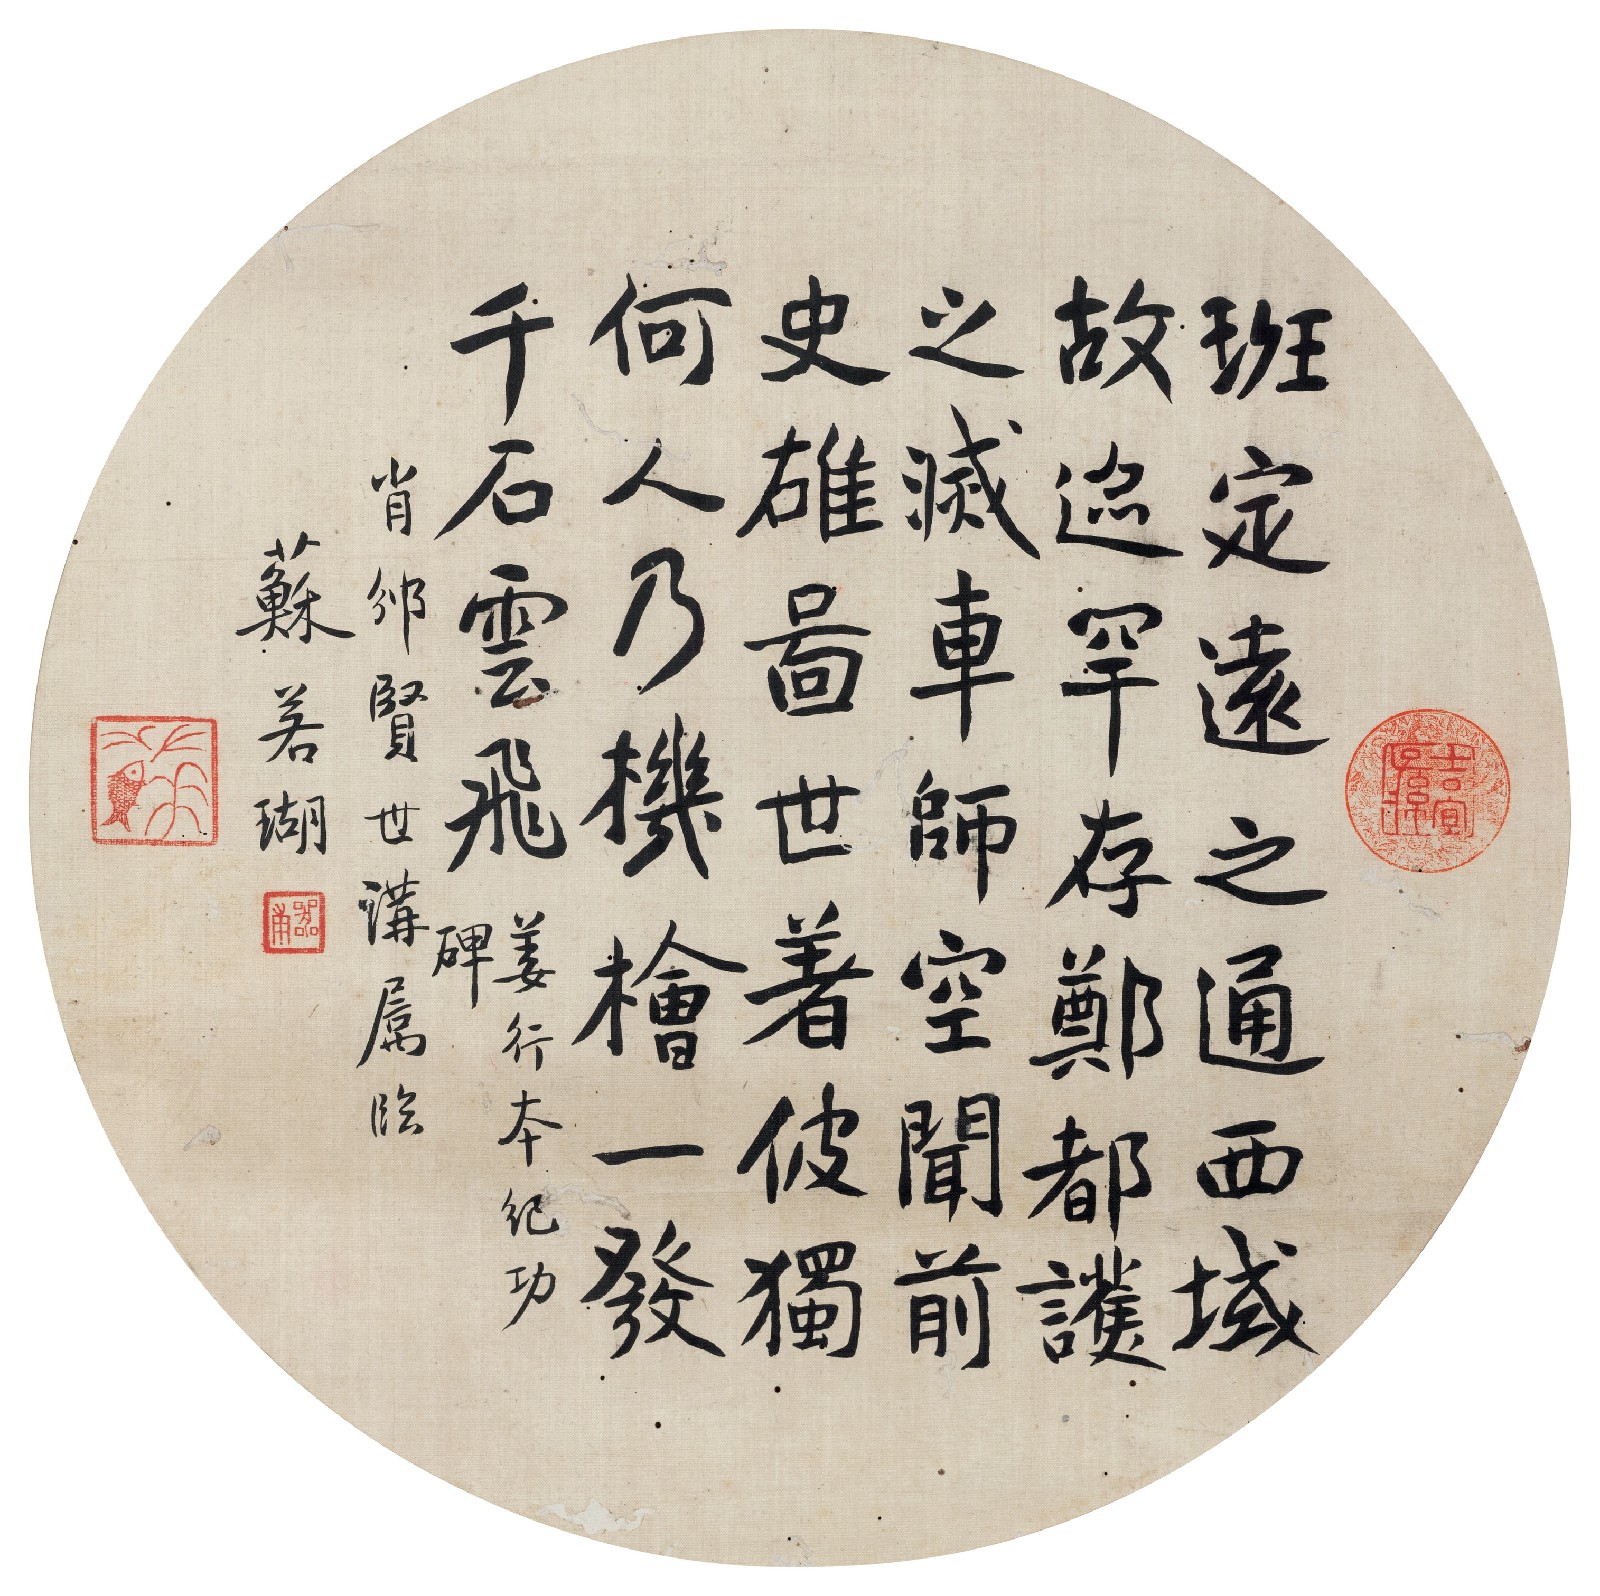 班定遠之通西域
故迹罕存鄭都護
之滅車師空聞前
史雄啚世著彼獨
何人乃機檜一發
千石雲飛
姜行本紀功
碑
肖邠賢世講属临
蘇若瑚
器甫